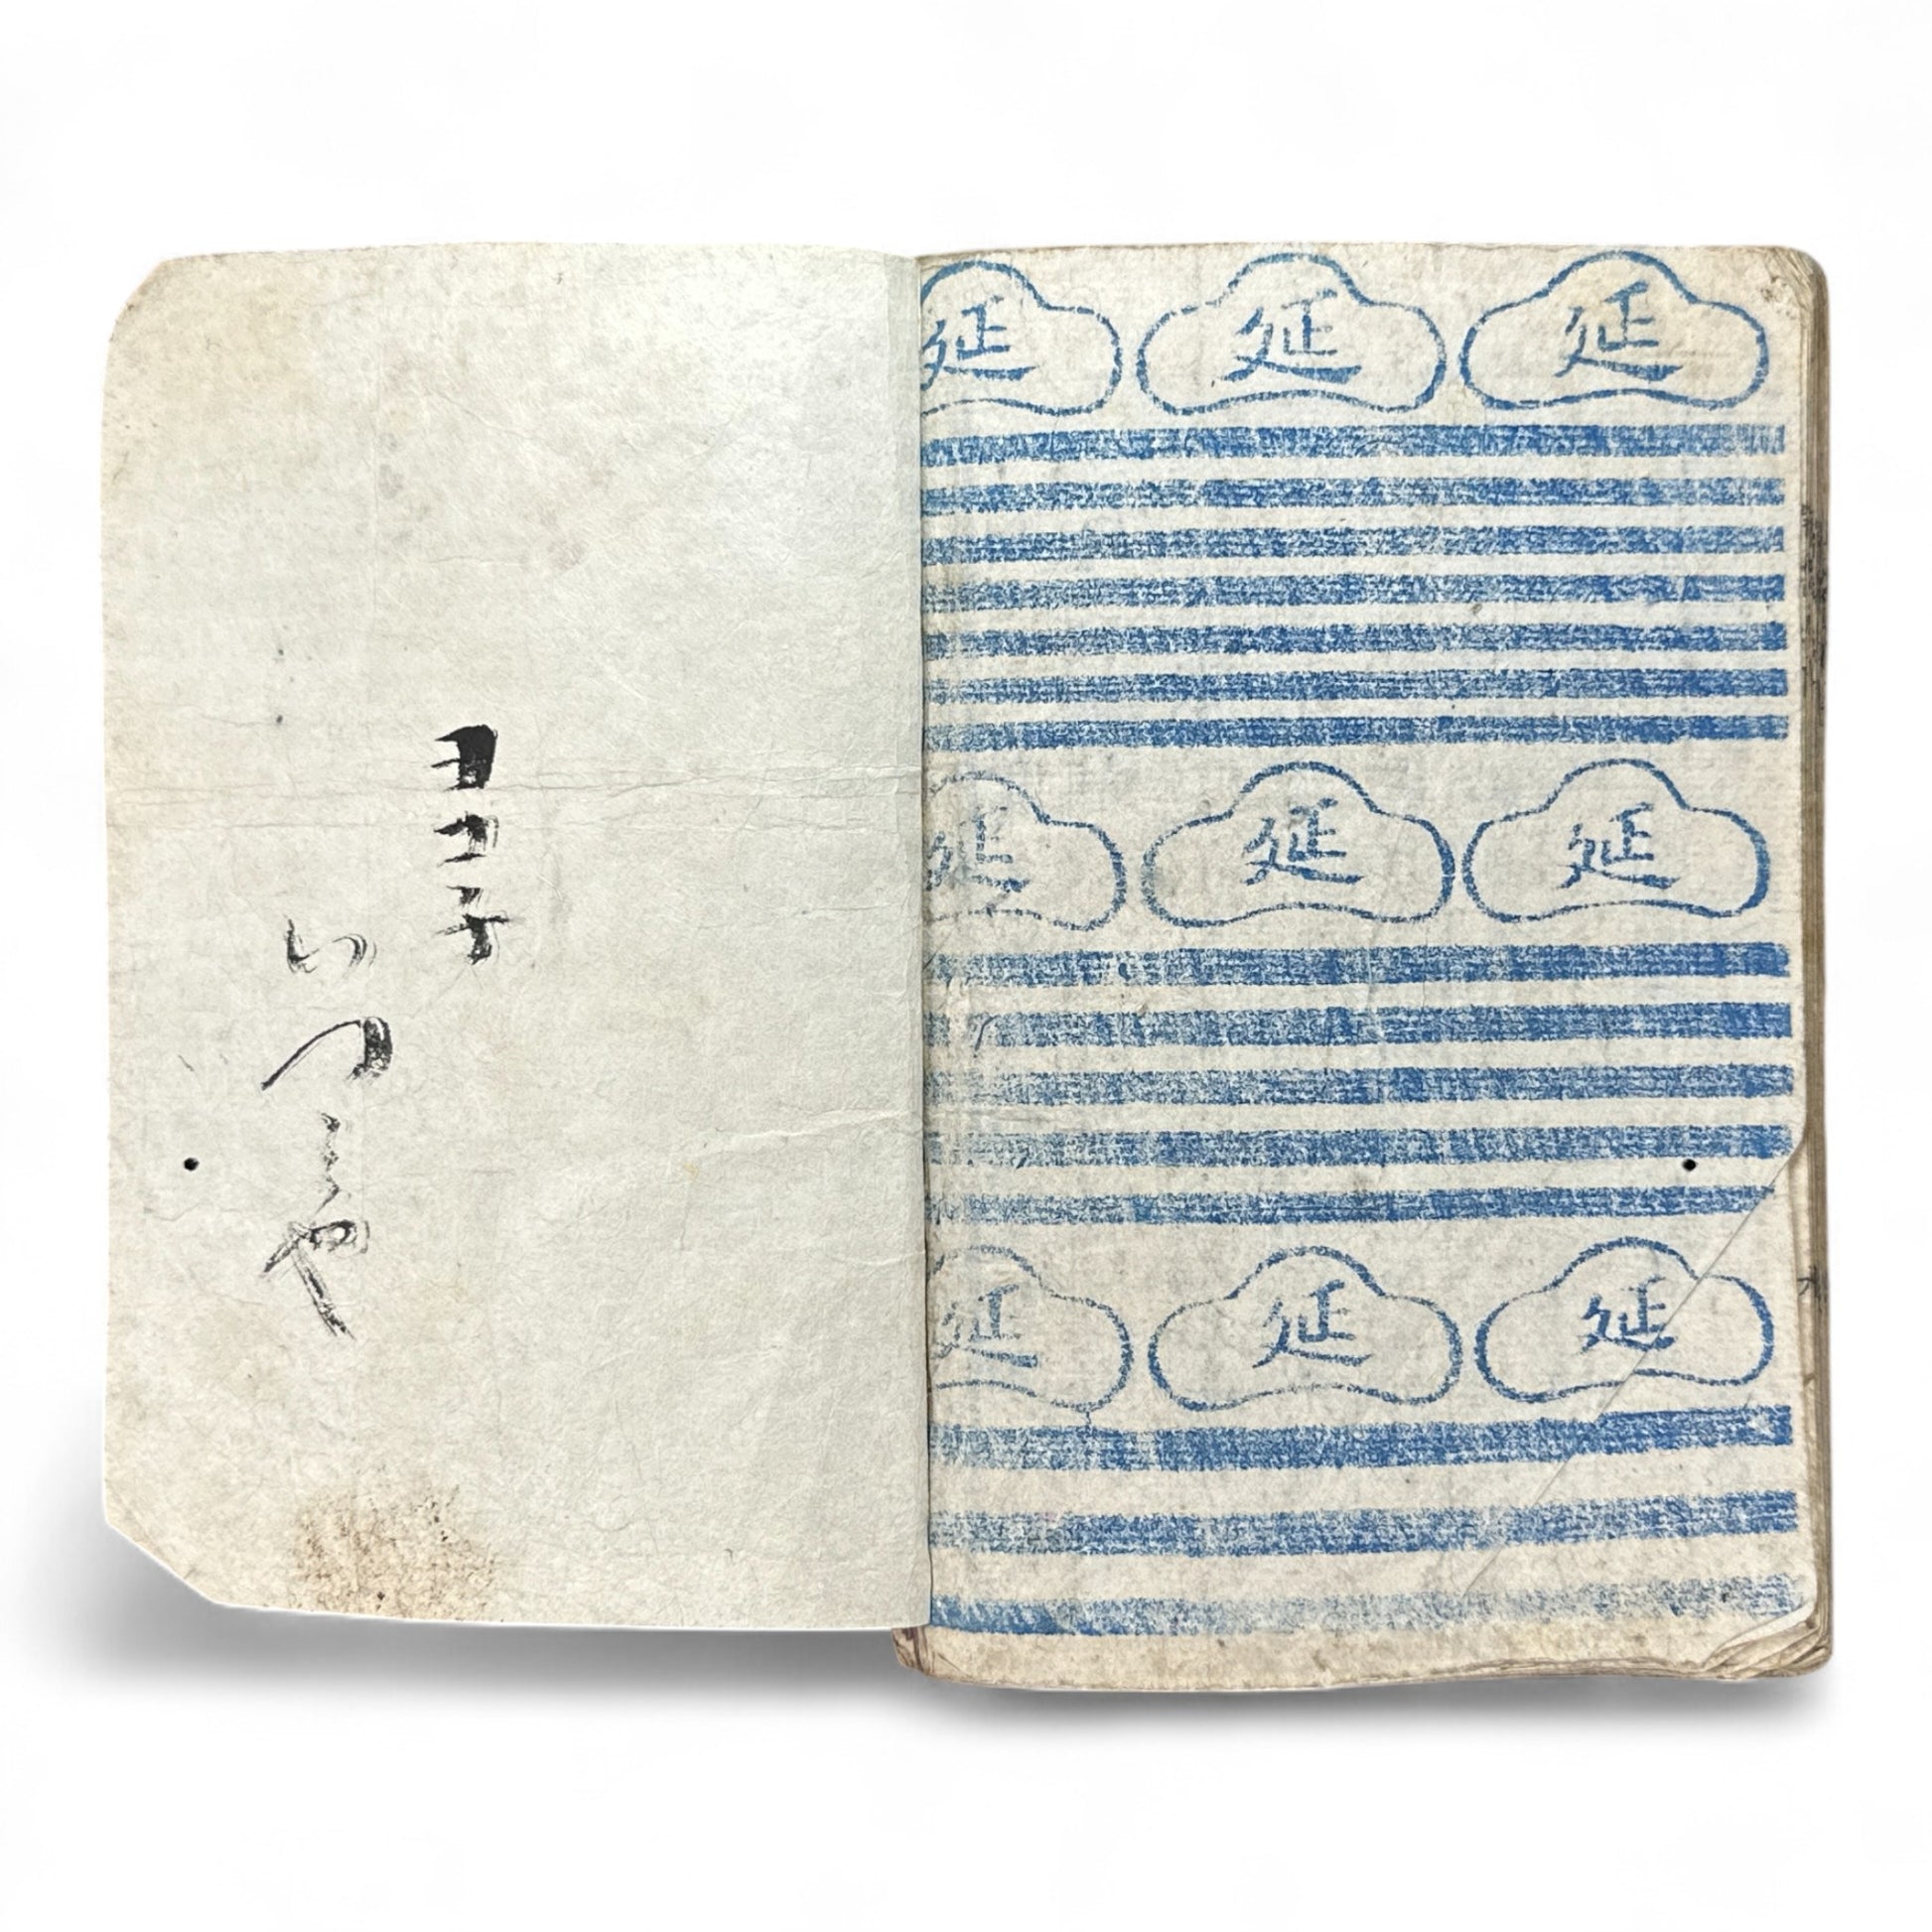 延 延 延
延 延 延
延 延 延
いつミや